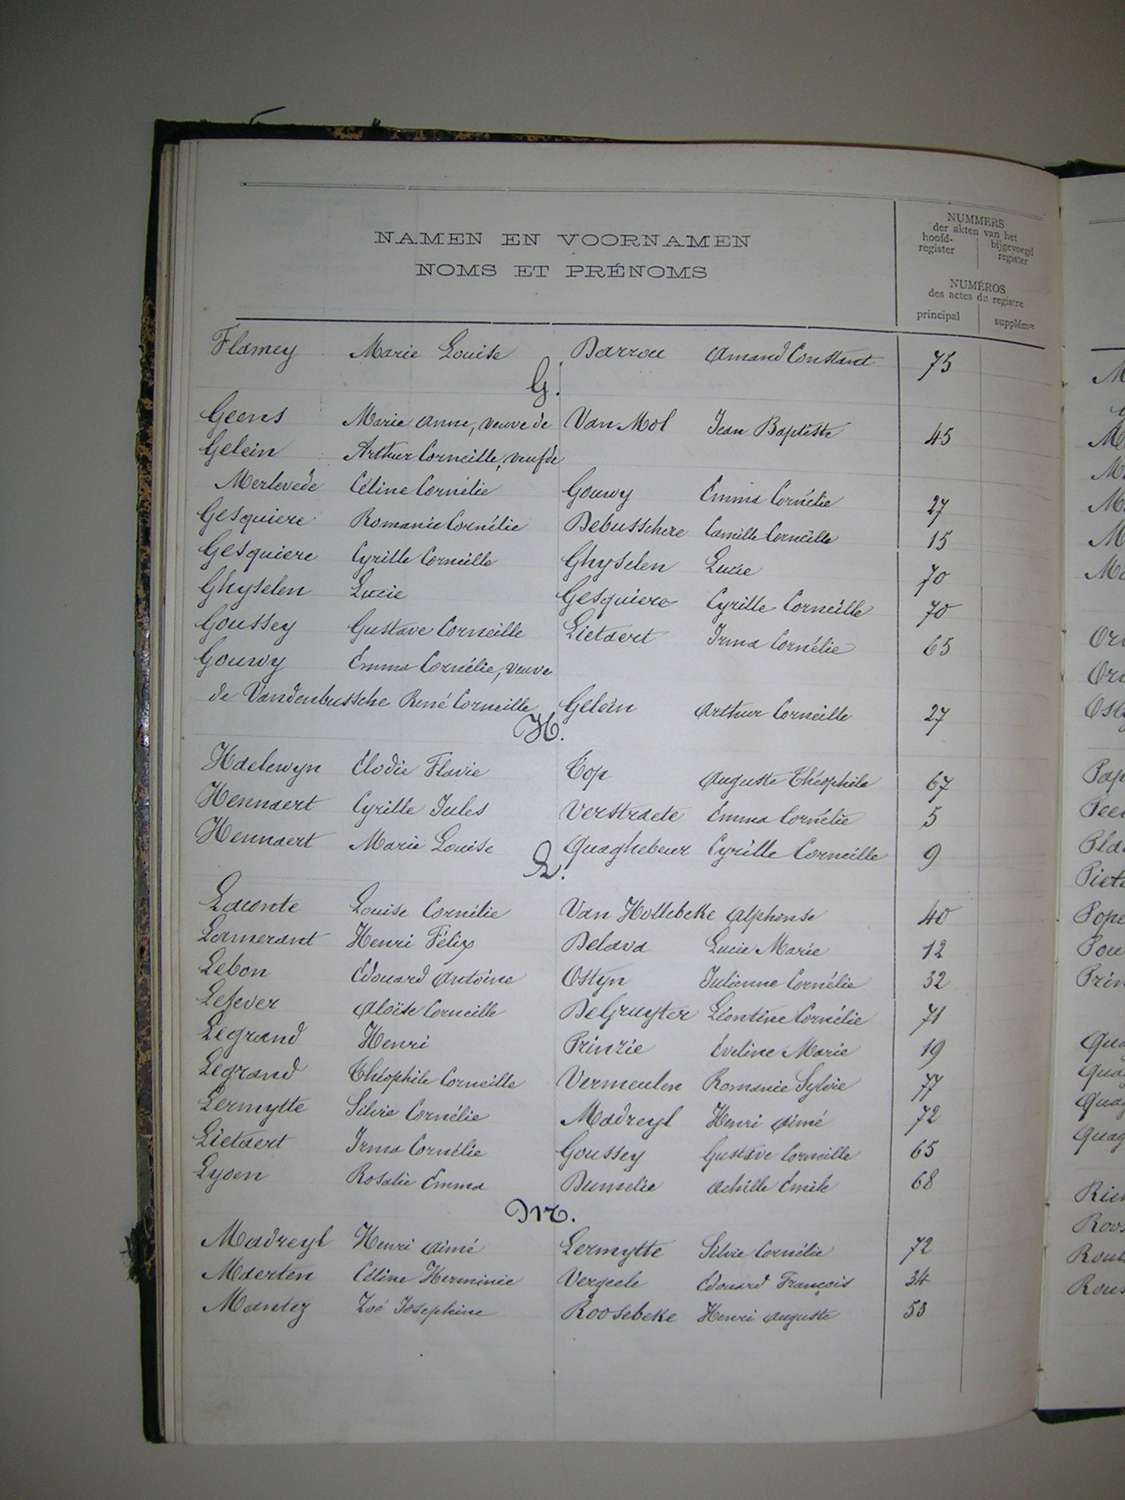 NAMEN EN VOORNAMEN
NOMS ET PRÉNOMS
NUMMERS
der akten van het
hoofd-register
bijgevoegd register
NUMÉROS
des actes du registre
principal
supplém
Flamey Marie Louise Darrou Amand Constant 75
G.
Geens Marie Anne, veuve de Van Mol Jean Baptiste 45
Gelein Arthur Corneille, veuf de
Merlevede Céline Cornélie Gouwy Emma Cornélie 27
Gesquiere Romanie Cornélie Debusschere Camille Corneille 15
Gesquiere Cyrille Corneille Ghyselen Lucie 70
Ghyselen Lucie Gesquiere Cyrille Corneille 70
Goussey Gustave Corneille Lietaert Irma Cornélie 65
Gouwy Emma Cornélie, veuve
de Vandenbussche René Corneille Gelein Arthur Corneille 27
H.
Haelewyn Elodie Flavie Top Auguste Théophile 67
Hennaert Cyrille Jules Verstraete Emma Cornélie 5
Hennaert Marie Louise Quaghebeur Cyrille Corneille 9
L.
Laconte Louise Cornélie Van Hollebeke Alphonse 40
Lamerant Henri Félix Delava Lucie Marie 12
Lebon Edouard Antoine Ostyn Julienne Cornélie 32
Lefever Aloïse Corneille DeGruyter Léontine Cornélie 71
Legrand Henri Prinzie Eveline Marie 19
Legrand Théophile Corneille Vermeulen Romanie Sylvie 77
Lermytte Silvie Cornélie Madreyl Henri Aimé 72
Lietaert Irma Cornélie Goussey Gustave Corneille 65
Lyoen Rosalie Emma Dumelie Achille Emile 68
M.
Madreyl Henri Aimé Lermytte Silvie Cornélie 72
Maerten Céline Herminie Vergeele Edouard François 34
Mantez Zoé Joséphine Roosebeke Henri Auguste 53